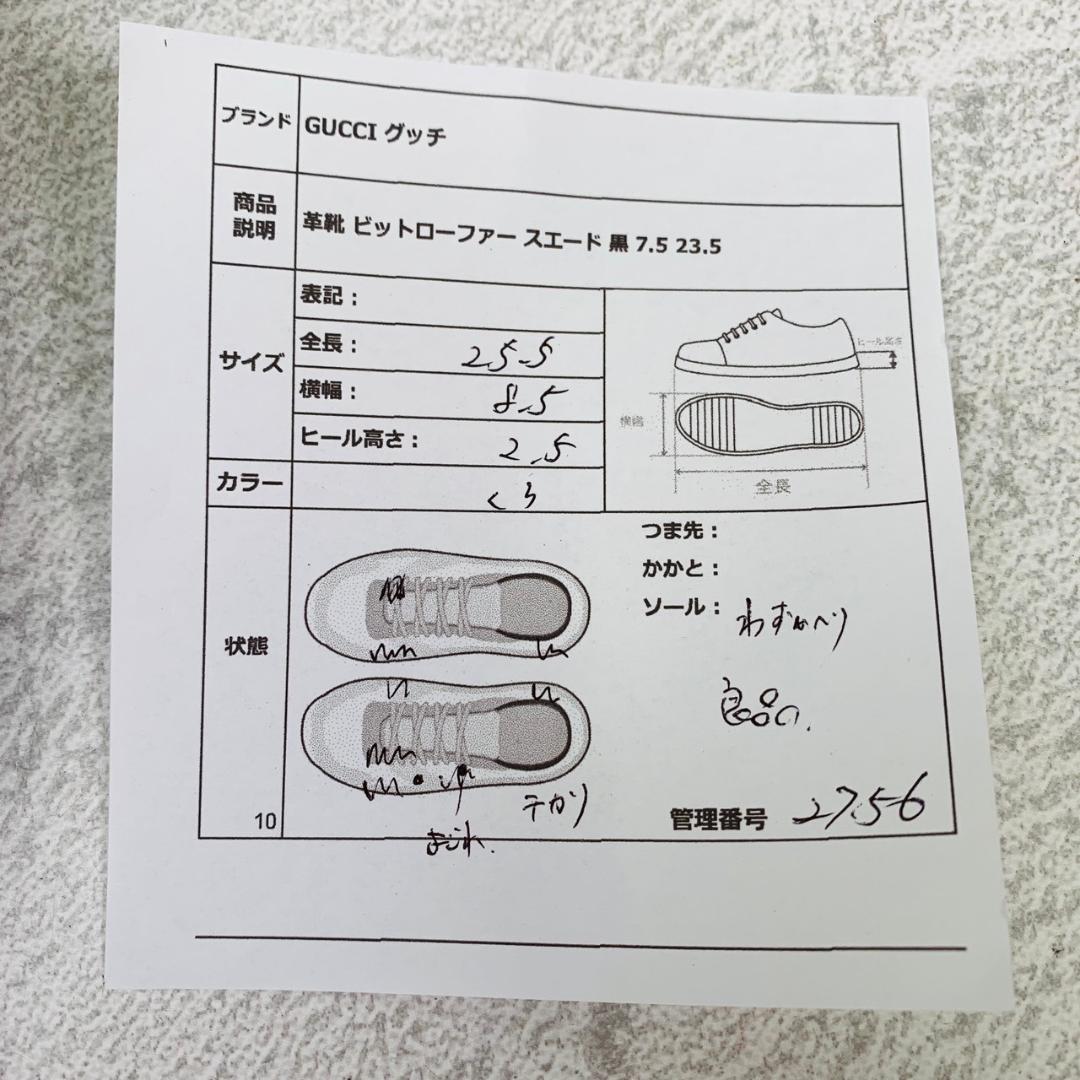 ブランド GUCCI グッチ
商品
説明
革靴 ビットローファー スエード 黒 7.5 23.5
サイズ
表記：
全長： 25.5
横幅： 8.5
ヒール高さ： 2.5
ヒール高さ
横幅
全長
カラー くろ
状態
つま先：
かかと：
ソール： わずかヘリ
良品
テカリ
管理番号 2756
10
よごれ.